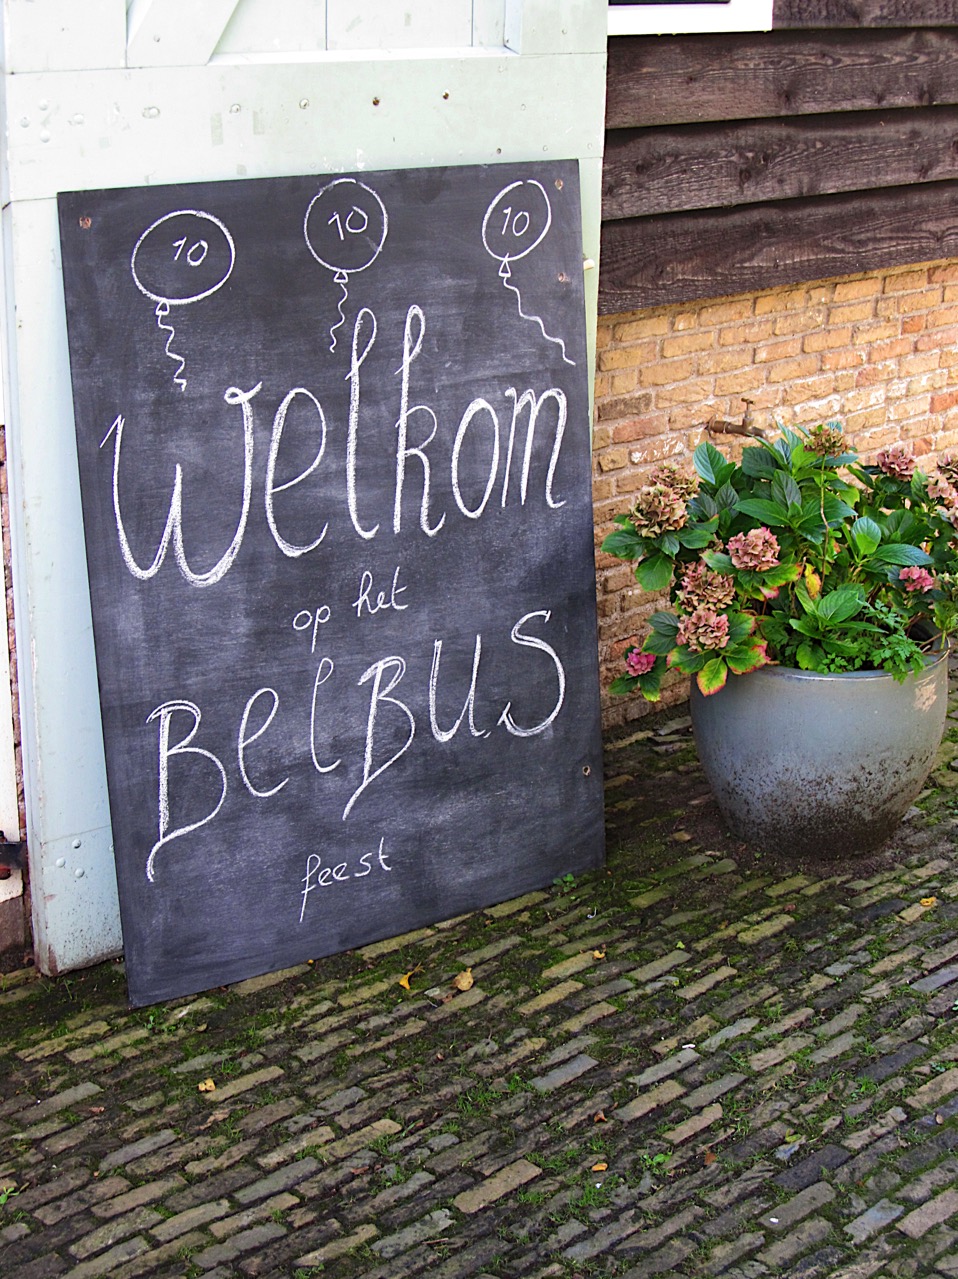 10 10 10
Welkom
op het
BelBUS
feest